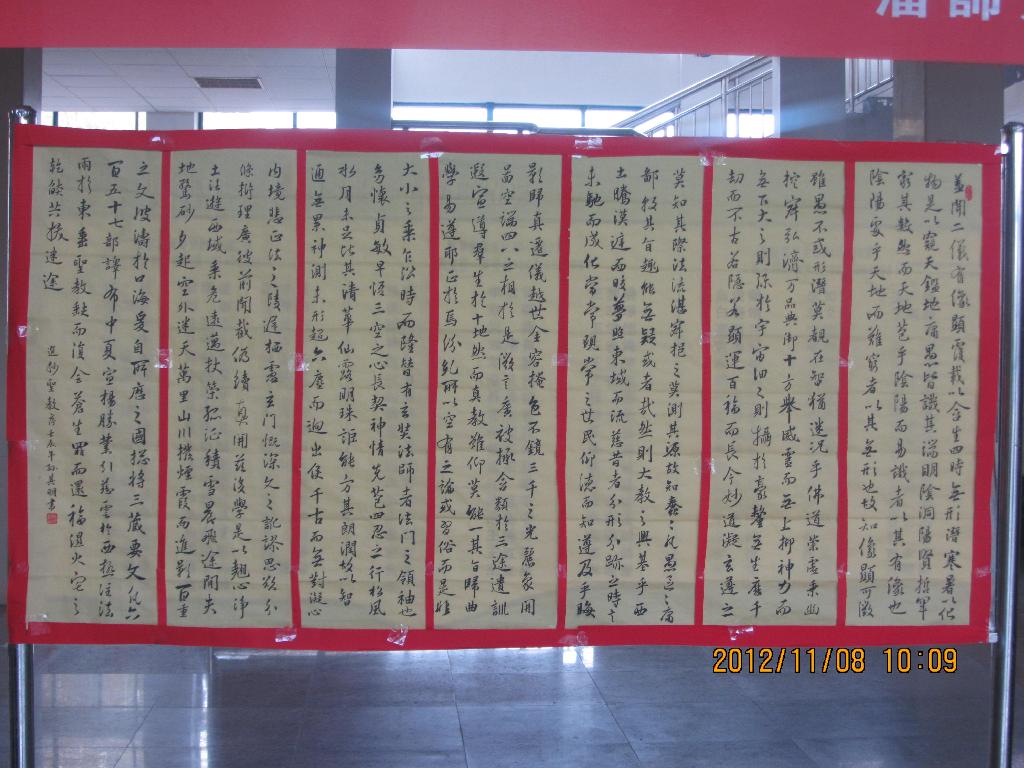 潘師
蓋聞二儀有像顯覆載以含生四時無形潛寒暑以化
物是以窺天鑑地庸愚皆識其端明陰洞陽賢哲罕
窮其數然而天地苞乎陰陽而易識者以其有像也
陰陽處乎天地而難窮者以其無形也故知像顯可徵
雖愚不惑形潛莫覩在智猶迷況乎佛道崇虛乘幽
控寂弘濟万品典御十方舉威靈而無上抑神力而
無下大之則弥於宇宙細之則攝於豪釐無生歷千
劫而不古若隱若顯運百福而長今妙道凝玄遵之
莫知其際法流湛寂挹之莫測其源故知蠢〻凡愚區〻庸
鄙投其旨趣能無疑或者哉然則大教之興基乎西
土騰漢庭而皎夢照東域而流慈昔者分形分跡之時言
未馳而成化當常現常之世民仰德而知遵及乎晦
影歸真遷儀越世金容掩色不鏡三千之光麗象開
圖空端四八之相於是微言廣被拯含類於三途遺訓
遐宣導群生於十地然而真教難仰莫能一其旨歸曲
學易遵耶正於焉紛糺所以空有之論或習俗而是非
大小之乘乍沿時而隆替有玄奘法師者法門之領袖也
幼懷貞敏早悟三空之心長契神情先苞四忍之行松風
水月未足比其清華仙露明珠詎能方其朗潤故以智
通無累神測未形超六塵而迥出隻千古而無對凝心
内境悲正法之陵遲栖慮玄門慨深文之訛謬思欲分
條析理廣彼前聞截偽續真開茲後學是以翹心淨
土法遊西域乘危遠邁杖策孤征積雪晨飛途間失
地驚砂夕起空外迷天萬里山川撥煙霞而進影百重
之文波濤於口海爰自所歷之國總將三藏要文凡六
百五十七部譯布中夏宣揚勝業引慈雲於西極注法
雨於東垂聖教缺而復全蒼生罪而還福濕火宅之
乾燄共拔迷途
選抄聖教序壬辰年孫其明書
2012/11/08 10:09